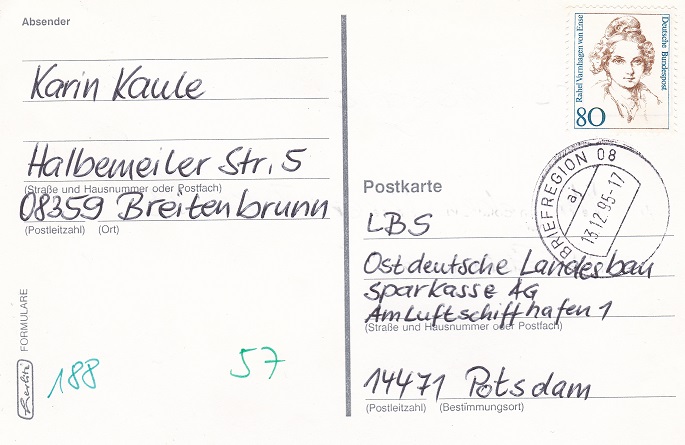 Absender
Karin Kaule
Halbemeiler Str. 5
(Straße und Hausnummer oder Postfach)
08359 Breitenbrunn
(Postleitzahl) (Ort)
Herlitz
FORMULARE
188
57
Rahel Varnhagen von Ense
Deutsche Bundespost
80
BRIEFREGION 08
aj
13.12.95-17
Postkarte
LBS
Ostdeutsche Landesbau
sparkasse AG
Am Luftschiffhafen 1
(Straße und Hausnummer oder Postfach)
14471 Potsdam
(Postleitzahl) (Bestimmungsort)